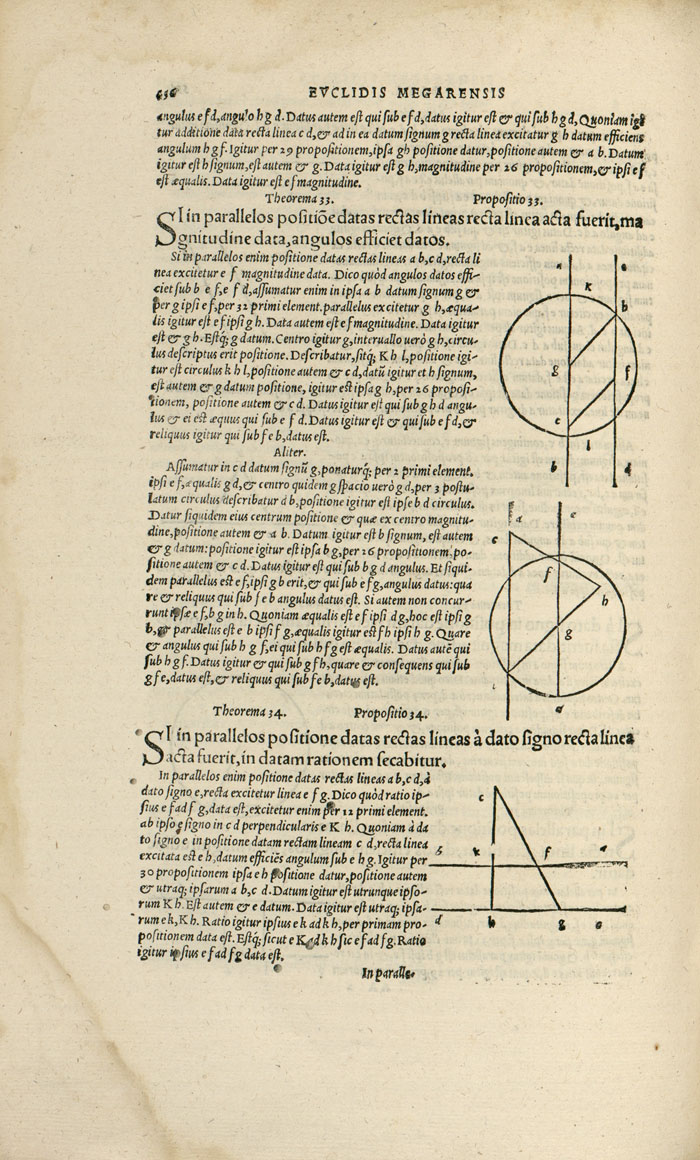 636 EVCLIDIS MEGARENSIS
angulus e f d, angulo h g d. Datus autem est qui sub e f d, datus igitur est & qui sub h g d, Quoniam igi
tur additione data recta linea c d, & ad in ea datum signum g recta linea excitatur g h datum efficiens
angulum h g f. Igitur per 29 propositionem, ipsa gh positione datur, positione autem & a b. Datum
igitur est h signum, est autem & g. Data igitur est g h, magnitudine per 26 propositionem, & ipsi e f
est æqualis. Data igitur est e f magnitudine.
Theorema 33. Propositio 33.
SI in parallelos positiõe datas rectas lineas recta linea acta fuerit, ma
gnitudine data, angulos efficiet datos.
Si in parallelos enim positione datas rectas lineas a b, c d, recta li
nea excitetur e f magnitudine data. Dico quòd angulos datos effi-
ciet sub b e f, e f d, assumatur enim in ipsa a b datum signum g &
per g ipsi e f, per 32 primi element. parallelus excitetur g h, æqua-
lis igitur est e f ipsi g h. Data autem est e f magnitudine. Data igitur
est & g h. Estq; g datum. Centro igitur g, interuallo uerò g h, circu-
lus descriptus erit positione. Describatur, sitq; K h l, positione igi-
tur est circulus k h l, positione autem & c d, datũ igitur et h signum,
est autem & g datum positione, igitur est ipsa g h, per 26 proposi-
tionem, positione autem & c d. Datus igitur est qui sub g h d angu-
lus & ei est æquus qui sub e f d. Datus igitur est & qui sub e f d, &
reliquus igitur qui sub f e b, datus est.
Aliter.
Assumatur in c d datum signũ g, ponaturq; per 2 primi element.
ipsi e f, æqualis g d, & centro quidem g spacio uerò g d, per 3 postu-
latum circulus describatur d b, positione igitur est ipse b d circulus.
Datur siquidem eius centrum positione & quæ ex centro magnitu-
dine, positione autem & a b. Datum igitur est b signum, est autem
& g datum: positione igitur est ipsa b g, per 26 propositionem, po-
sitione autem & c d. Datus igitur est qui sub b g d angulus. Et siqui-
dem parallelus est e f, ipsi g b erit, & qui sub e f g, angulus datus: qua
re & reliquus qui sub f e b angulus datus est. Si autem non concur-
runt ipsæ e f, b g in h. Quoniam æqualis est e f ipsi d g, hoc est ipsi g
b, & parallelus est e b ipsi f g, æqualis igitur est f h ipsi h g. Quare
& angulus qui sub h g f, ei qui sub h f g est æqualis. Datus autẽ qui
sub h g f. Datus igitur & qui sub g f h, quare & consequens qui sub
g f e, datus est, & reliquus qui sub f e b, datus est.
Theorema 34. Propositio 34.
SI in parallelos positione datas rectas lineas à dato signo recta linea
acta fuerit, in datam rationem secabitur.
In parallelos enim positione datas rectas lineas a b, c d, à
dato signo e, recta excitetur linea e f g. Dico quòd ratio ip-
sius e f ad f g, data est, excitetur enim per 12 primi element.
ab ipso e signo in c d perpendicularis e K h. Quoniam á da
to signo e in positione datam rectam lineam c d, recta linea
excitata est e h, datum efficiẽs angulum sub e h g. Igitur per
30 propositionem ipsa e h positione datur, positione autem
& utraq; ipsarum a b, c d. Datum igitur est utrunque ipso-
rum K h. Est autem & e datum. Data igitur est utraq; ipsa-
rum e k, K h. Ratio igitur ipsius e k ad k h, per primam pro-
positionem data est. Estq; sicut e K ad k h sic e f ad f g. Ratio
igitur ipsius e f ad f g data est.
In paralle-
a
e
k
b
g
f
c
l
b
d
a
e
c
f
h
g
d
c
b
k
f
a
d
h
g
c